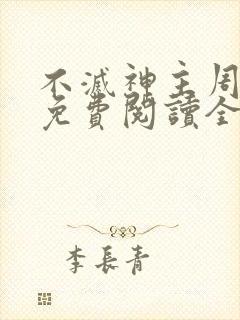 不滅神主周
免費閱讀全
李長青